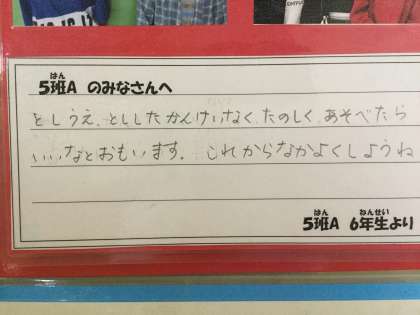 5班A のみなさんへ
としうえ、とししたかんけいなく、たのしく、あそべたら
いいなとおもいます。 これからなかよくしようね
5班A 6年生より